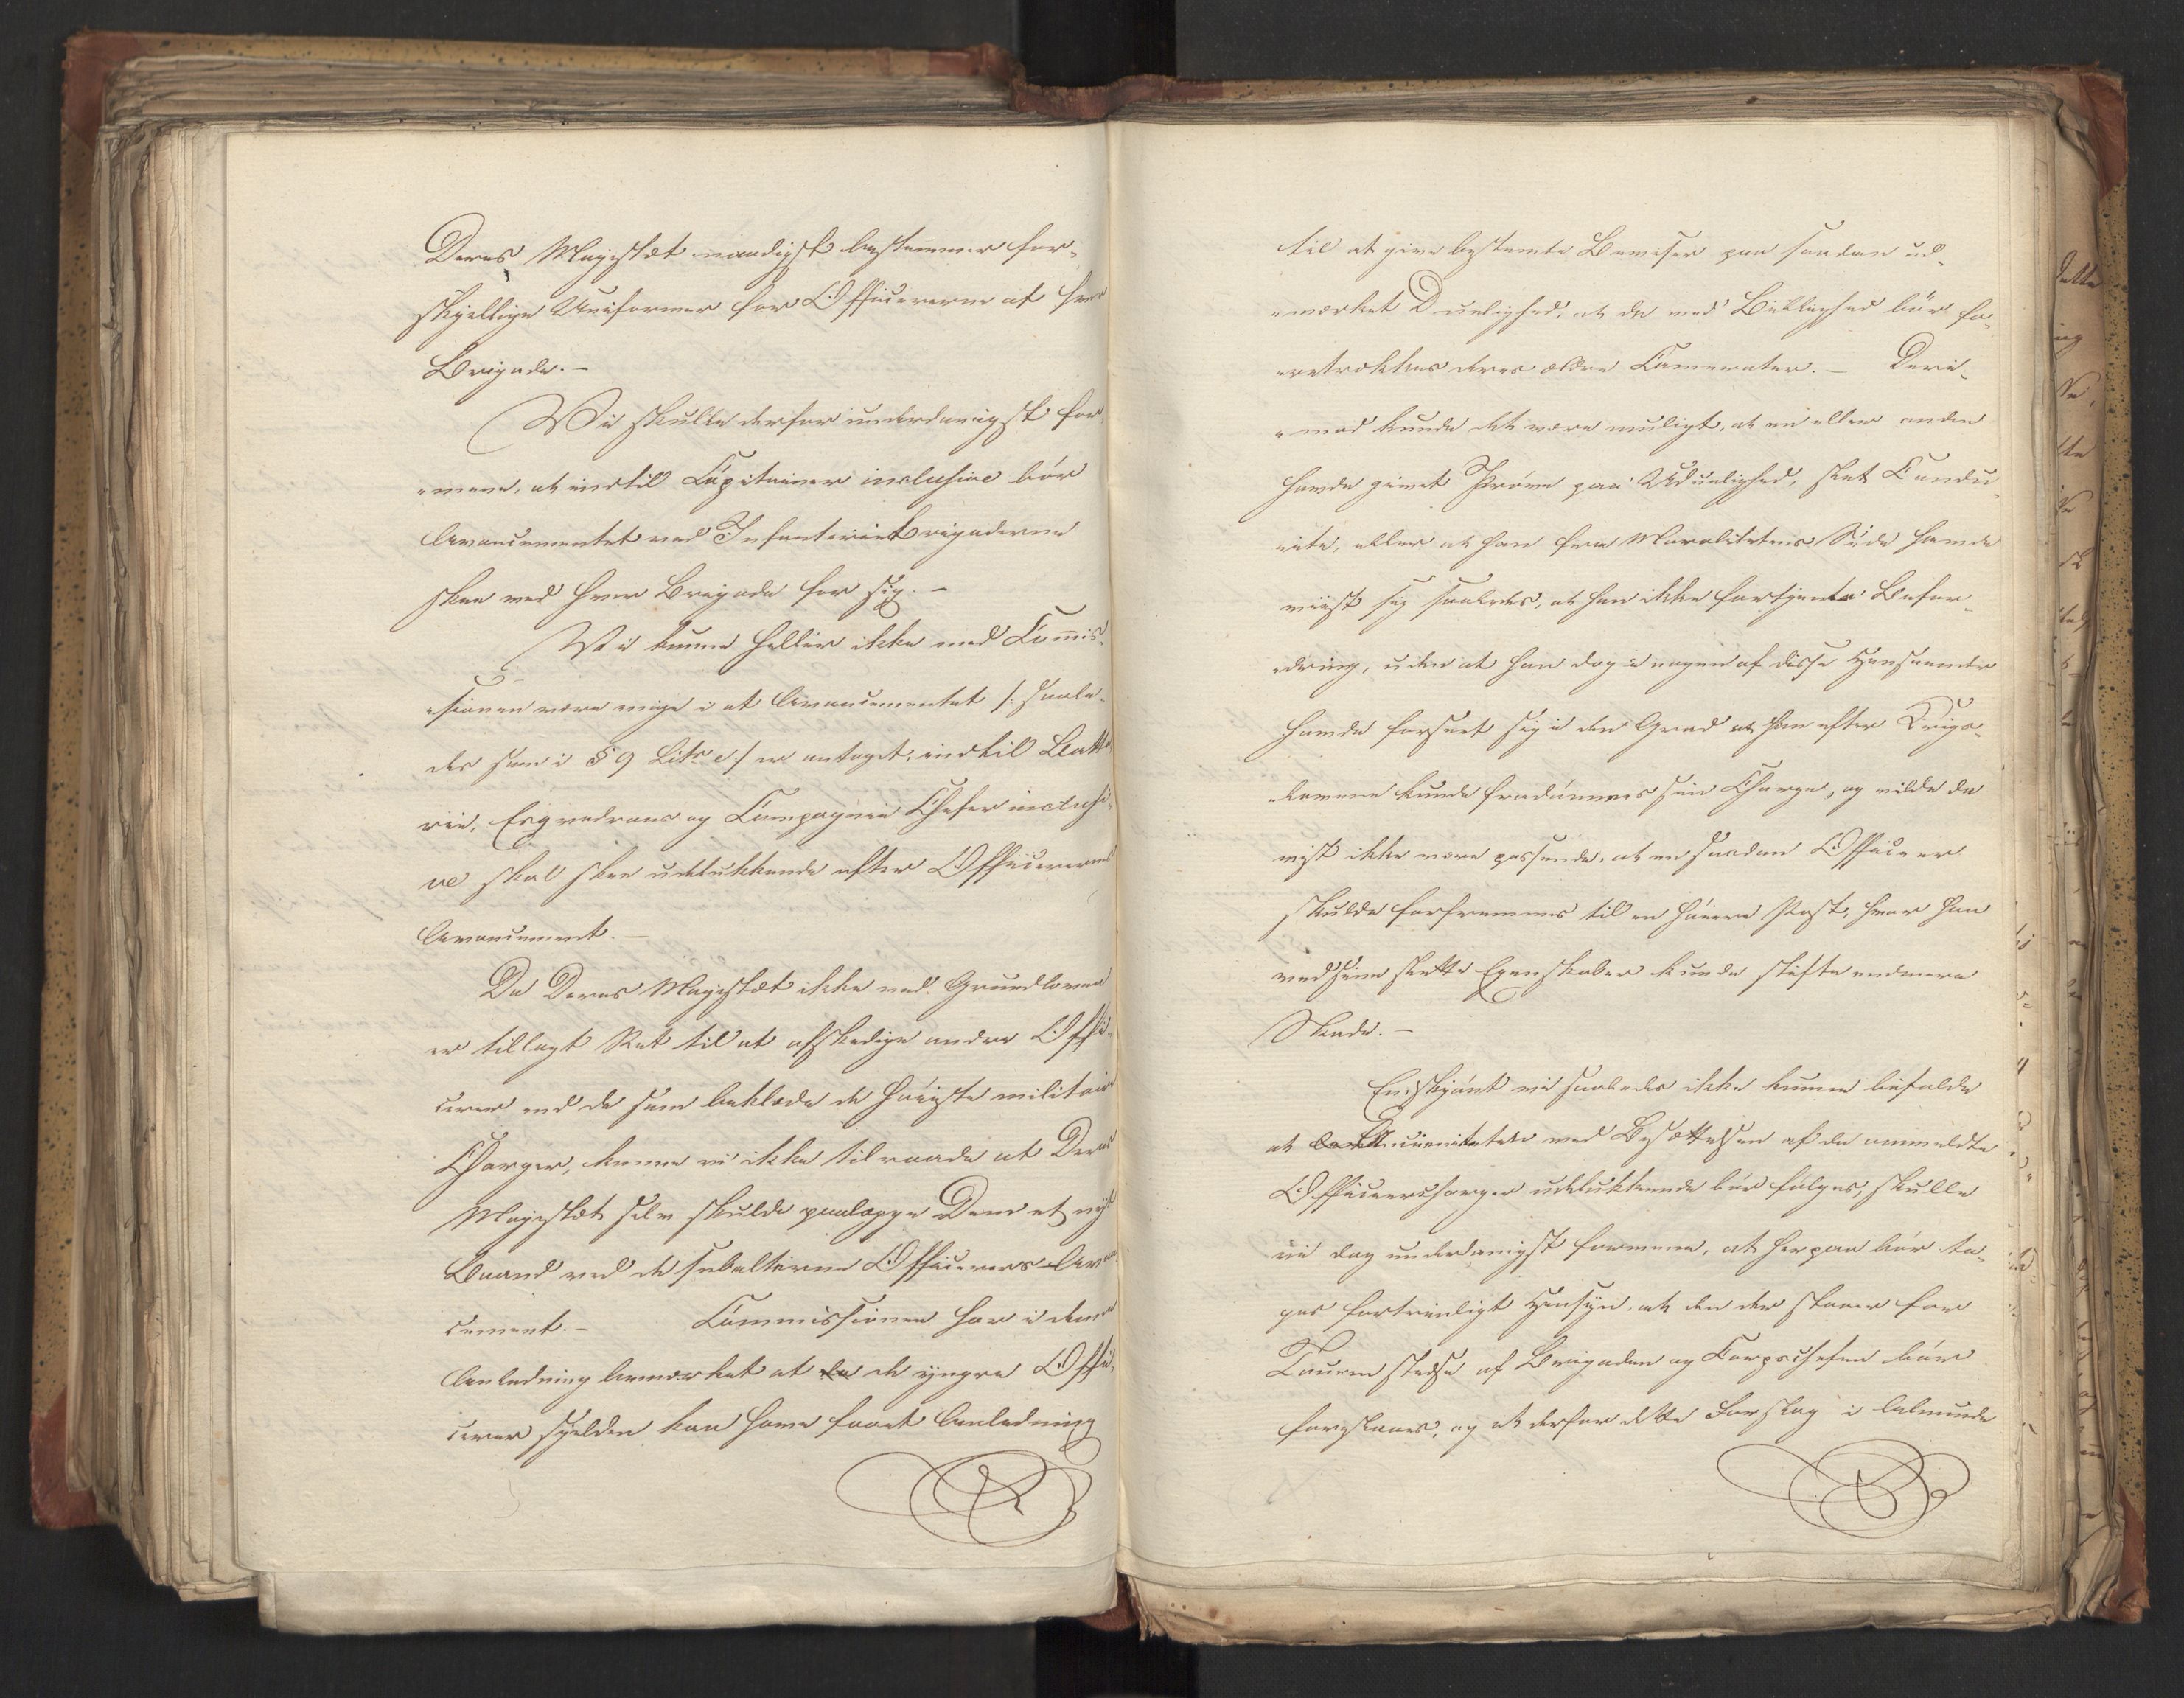 Deres Majestæt naadigst bestemmer for-
skjellige Uniformer for Officererne af hver
Brigade. –
Vi skulle derfor underdanigst for-
mene, at indtil Capitainer inclusive bör
Avancementet ved Infanterie Brigaderne
skee ved hver Brigade for sig. –
Vi kunne heller ikke med Commis-
sionen være enige i at Avancementet /: saale-
des som i § 9 Litr c :/ er antaget, indtil Batte
rie, Esqvadrons og Compagnie Chefer inclusi-
ve skal skee udelukkende efter Officerernes
Avancement. –
Da Deres Majestæt ikke ved Grundloven
er tillagt Ret til at afskedige andre Offi-
cerer end de som beklæde de höieste militaire
Charger, kunne vi ikke tilraade at Deres
Majestæt selv skulde paalægge Dem et nyt
Baand ved de subalterne Officerers Avan-
cement. – Commissionen har i denne
Anledning bemærket at de de yngre Offi-
cerer sjelden kan have faaet Anledning
til at give bestemte Beviser paa saadan ud-
mærket Duelighed, at de med Billighed bör fo-
retrækkes deres ældre Camerater. – Deri-
mod kunde det være muligt, at en eller anden
havde givet Pröve paa Uduelighed, slet Condu-
ite, eller at han fra Moralitetens Side havde
viist sig saaledes, at han ikke fortjente Befor-
dring, uden at han dog i nogen af disse Henseender
havde forseet sig i den Grad at han efter Krigs-
lovene kunde fradömmes sin Charge, og vilde da
vist ikke være passende, at en saadan Officeer
skulde forfremmes til en höiere Post, hvor han
ved sine slette Egenskaber kunde stifte endmere
Skade. –
Endskjönt vi saaledes ikke kunne bifalde
at Ancienniteten ved Besættelsen af de ommeldte
Officeerscharger udelukkende bör fölges, skulle
vi dog underdanigst formene, at herpaa bör ta-
ges fortrinligt Hensyn, at den der staaer for
Touren stedse af Brigaden og Corpschefen bör
foreslaaes, og at derfor dette Forslag i Alminde